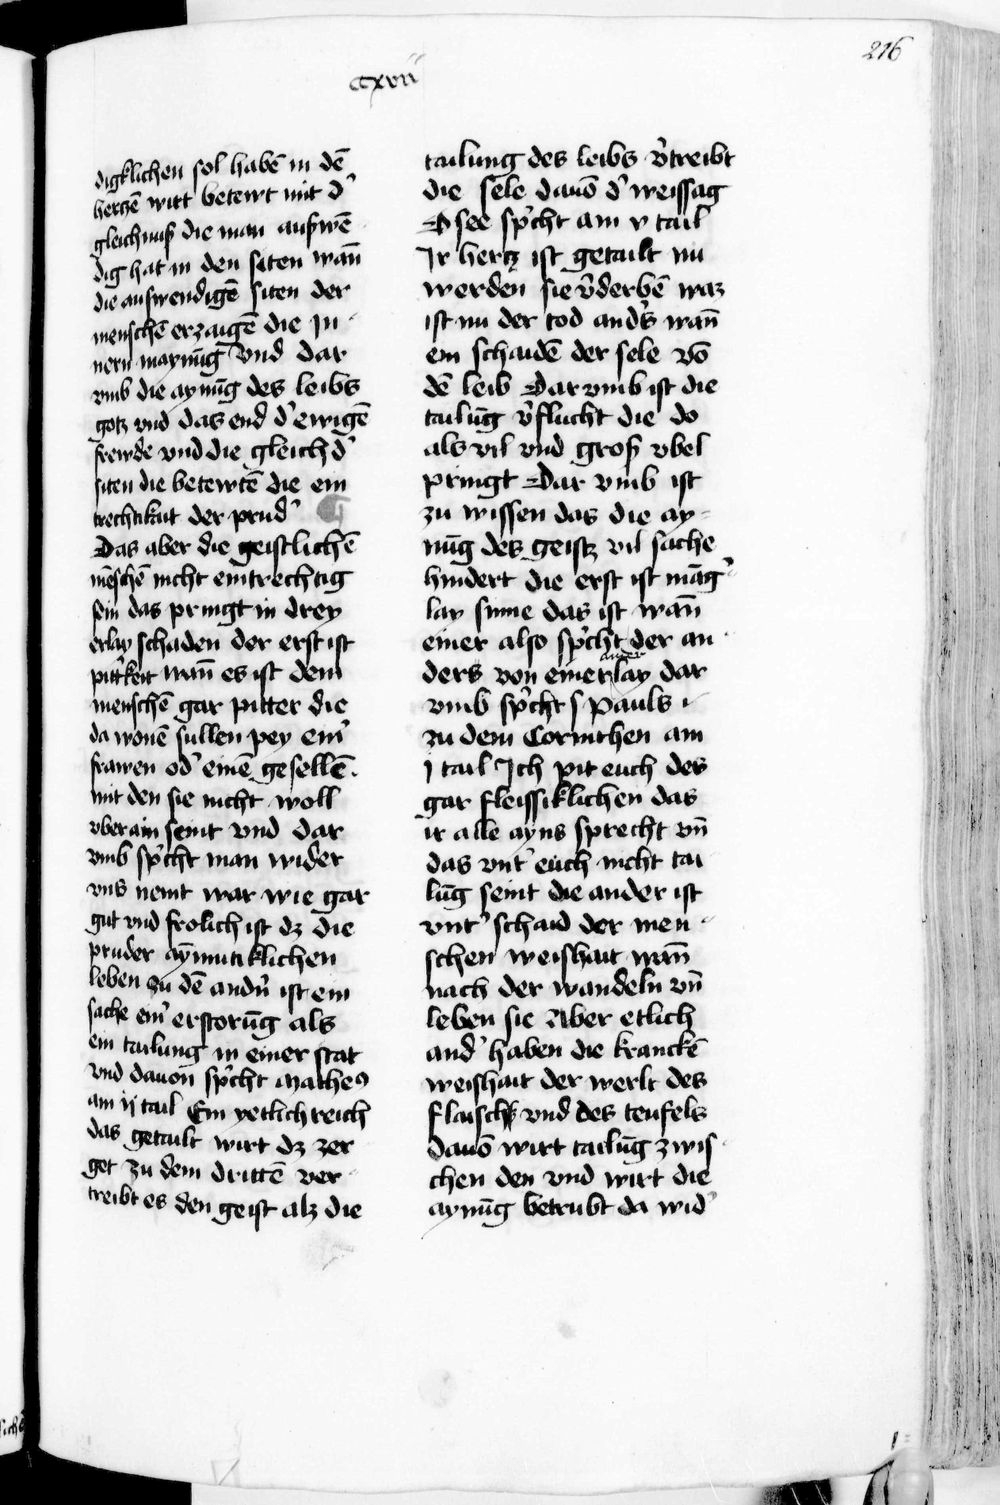 216
cxvii
digklichen sol habē in dē
hertzē wirt betewt mit d'
gleichnuß die man außwē
dig hat in den siten wañ
die außwendigē siten der
menschē erzaigē die In
nern maynūg vnd dar
vmb die aynūg des leibs
gotz vnd das end d' ewigē
frewde vnd die gleich d'
siten die betewtē die ein
trechtikait der prud'
Das aber die geistlichē
mēschē nicht eintrechtig
sein das pringt in drey
erlay schaden der erst ist
pitt'keit wañ es ist dem
menschē gar pitter die
da wonē sullen pey eim'
frawen od' einē gesellē
mit den sie nicht woll
vberain seint vnd dar
vmb sp'cht man wider
vns nemt war wie gar
gut vnd frolich ist dz die
pruder aỹmutiklichen
leben zu dē and'n ist ein
sache eim' erstorūg als
ein tailung in einer stat
vnd dauon sp'cht Matheꝰ
am ij tail Ein yetlich reich
das getailt wirt dz zer
get zu dem drittē ver
treibt es den geist alz die
tailung des leibs v'treibt
die sele dauō d' weissag
Osee sp'cht am v tail
Ir hertz ist getailt nu
werden sie v'derbē waz
ist nu der tod and's wañ
ein schaidē der sele vō
dē leib Dar vmb ist die
tailūg v'flucht die do
als vil vnd groß vbel
pringt Dar vmb ist
zu wissen das die ay
nūg des geistz vil sache
hindert die erst ist māg'
lay sinne das ist wañ
einer also sp'cht der an
ders von einer ander lay dar
vmb sp'cht s Pauls
zu dem Corinthen am
j tail Ich pit euch des
gar fleissiklichen das
ir alle ayns sprecht vñ
das vnt' euch nicht tai
lūg seint die ander ist
vnt'schaid der men
schen weishait wañ
nach der wandeln vñ
leben sie Aber etlich
and' haben die kranckē
weishait der werlt des
flaischß vnd des teufels
dauō wirt tailūg zwis
chen den vnd wirt die
aynūg betrubt da wid'